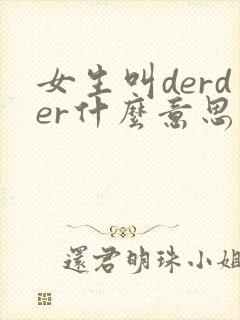 女生叫derd
er什麼意思
還君明珠小姐